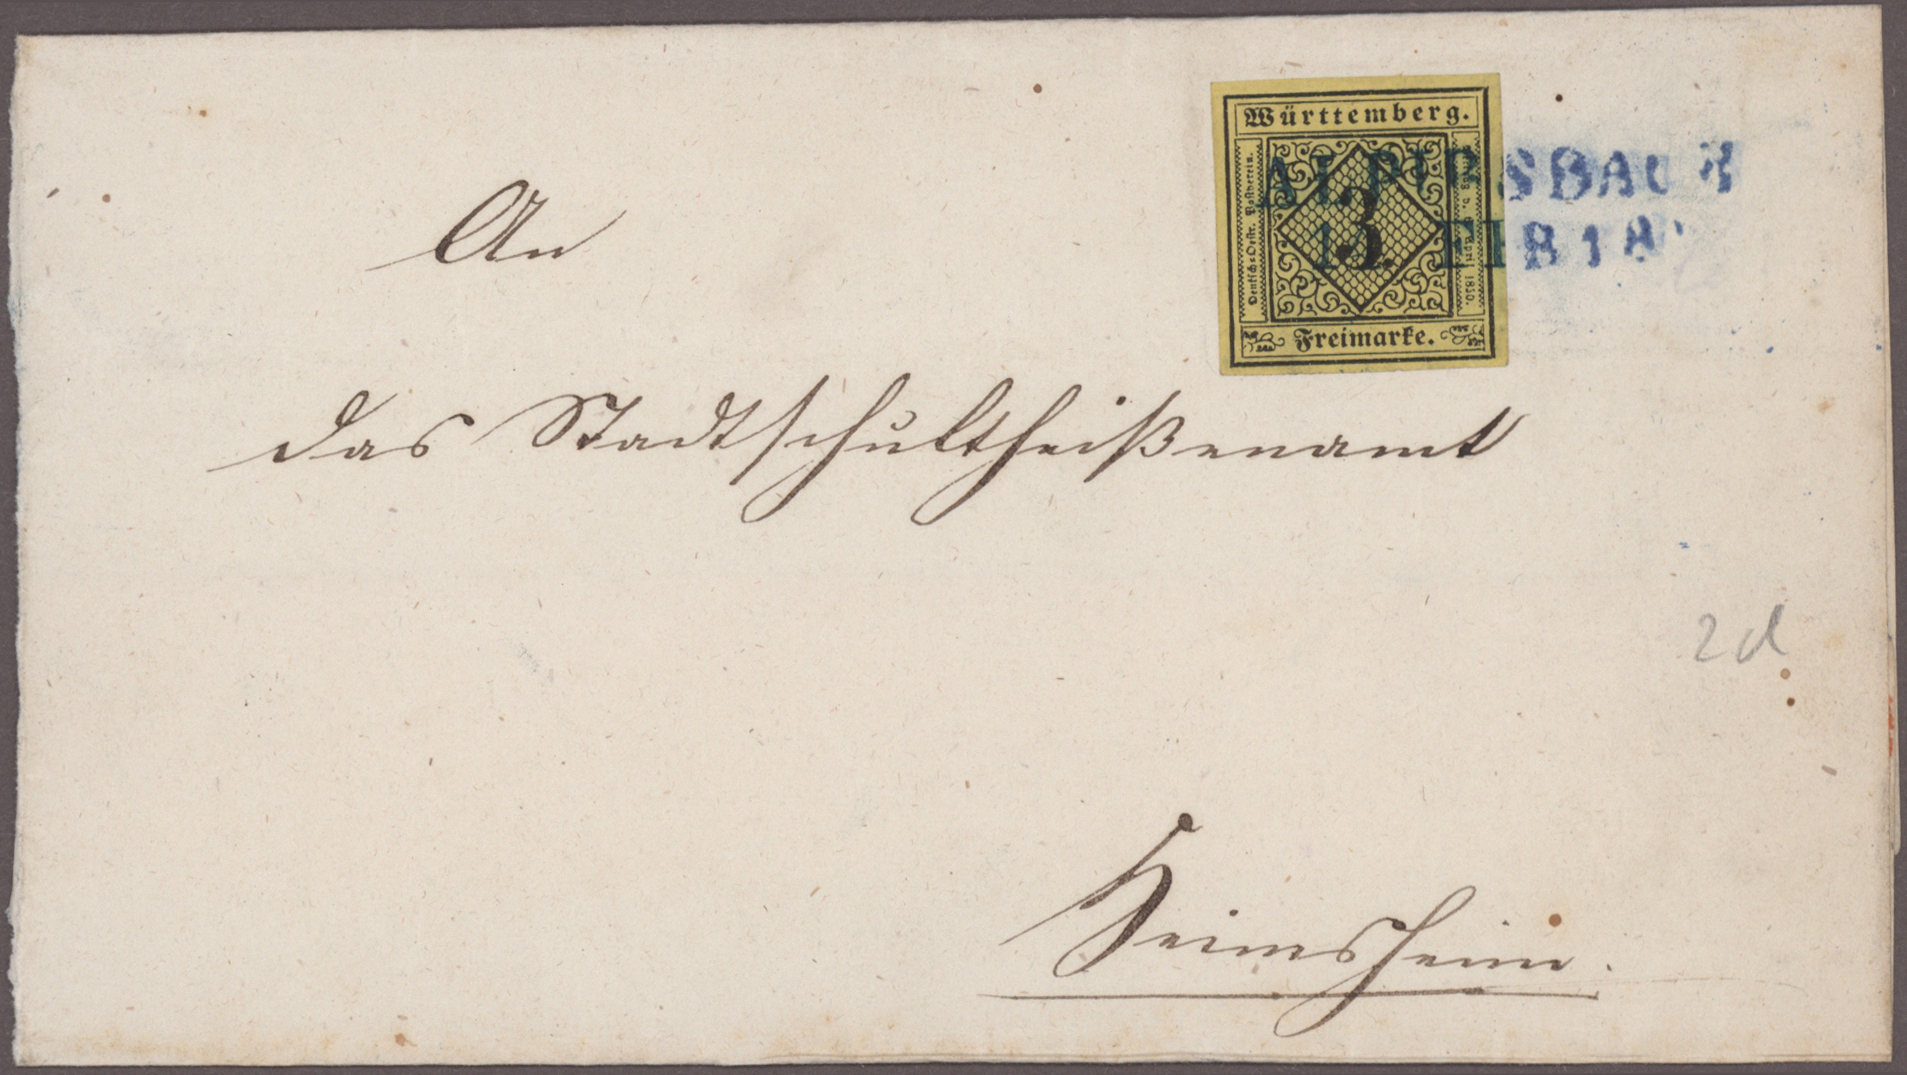 Württemberg.
Deutsch-Oestr. Postverein.
3.
Freimarke.
ALPIRSBACH
FEB 18
An
das Stadtschultheißenamt
2d
Heimsheim.